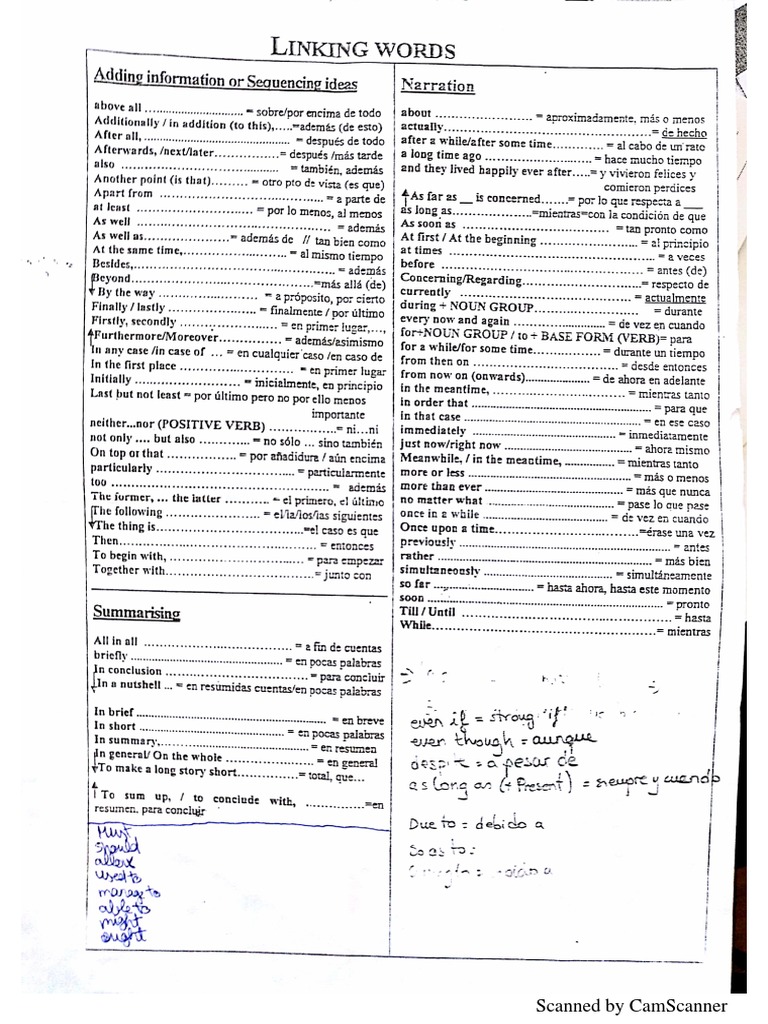 LINKING WORDS
Adding information or Sequencing ideas
above all .............................. = sobre/por encima de todo
Additionally / in addition (to this),.....=además (de esto)
After all, ................................... = después de todo
Afterwards, /next/later................= después /más tarde
also ........................................ = también, además
Another point (is that)......... = otro pto de vista (es que)
Apart from ........................................ = a parte de
at least ......................... = por lo menos, al menos
As well ................................................ = además
As well as..................= además de // tan bien como
At the same time,...................... = al mismo tiempo
Besides,............................................= además
Beyond.....................................=más allá (de)
By the way ................... = a próposito, por cierto
Finally / lastly .................. = finalmente / por último
Firstly, secondly .................... = en primer lugar,...,
Furthermore/Moreover............= además/asimismo
In any case /in case of ... = en cualquier caso /en caso de
In the first place ........................... = en primer lugar
Initially ..................... = inicialmente, en principio
Last but not least = por último pero no por ello menos
importante
neither...nor (POSITIVE VERB) ............... = ni...ni
not only .... but also ........... = no sólo ... sino también
On top of that ............ = por añadidura / aún encima
particularly .............................. = particularmente
too ..................................................... = además
The former, ... the latter ........... = el primero, el último
The following .................... = el/la/los/las siguientes
The thing is..............................=el caso es que
Then............................................ = entonces
To begin with, .............................. = para empezar
Together with..............................= junto con
Summarising
All in all ................................ = a fin de cuentas
briefly ................................ = en pocas palabras
In conclusion .............................. = para concluir
In a nutshell ... = en resumidas cuentas/en pocas palabras
In brief .............................................. = en breve
In short .................................. = en pocas palabras
In summary,.................................... = en resumen
In general/ On the whole ...................... = en general
To make a long story short...............= total, que...
To sum up, / to conclude with, .............=en
resumen, para concluir
Must
should
used to
manage to
able to
might
ought
Narration
about ........................ = aproximadamente, más o menos
actually.....................................................= de hecho
after a while/after some time............ = al cabo de un rato
a long time ago ........................... = hace mucho tiempo
and they lived happily ever after.....= y vivieron felices y
comieron perdices
As far as __ is concerned.......= por lo que respecta a ___
as long as...................=mientras=con la condición de que
As soon as ................................... = tan pronto como
At first / At the beginning ......................... = al principio
at times .................................................... = a veces
before .................................................... = antes (de)
Concerning/Regarding...........................= respecto de
currently ............................................ = actualmente
during + NOUN GROUP........................... = durante
every now and again ........................ = de vez en cuando
for+NOUN GROUP / to + BASE FORM (VERB)= para
for a while/for some time............... = durante un tiempo
from then on ..................................... = desde entonces
from now on (onwards).................... = de ahora en adelante
in the meantime, ................................. = mientras tanto
in order that ............................................ = para que
in that case ........................................ = en ese caso
immediately .................................... = inmediatamente
just now/right now ............................. = ahora mismo
Meanwhile, / in the meantime, ............ = mientras tanto
more or less .................................... = más o menos
more than ever ................................. = más que nunca
no matter what ............................... = pase lo que pase
once in a while ............................ = de vez en cuando
Once upon a time..............................=érase una vez
previously .............................................. = antes
rather ................................................ = más bien
simultaneously ........................... = simultáneamente
so far ...................... = hasta ahora, hasta este momento
soon .................................................... = pronto
Till / Until ............................................. = hasta
While.................................................= mientras
even if = strong "if"
even though = aunque
despite = a pesar de
as long as (+ Present) = siempre y cuando
Due to = debido a
So as to:
Scanned by CamScanner